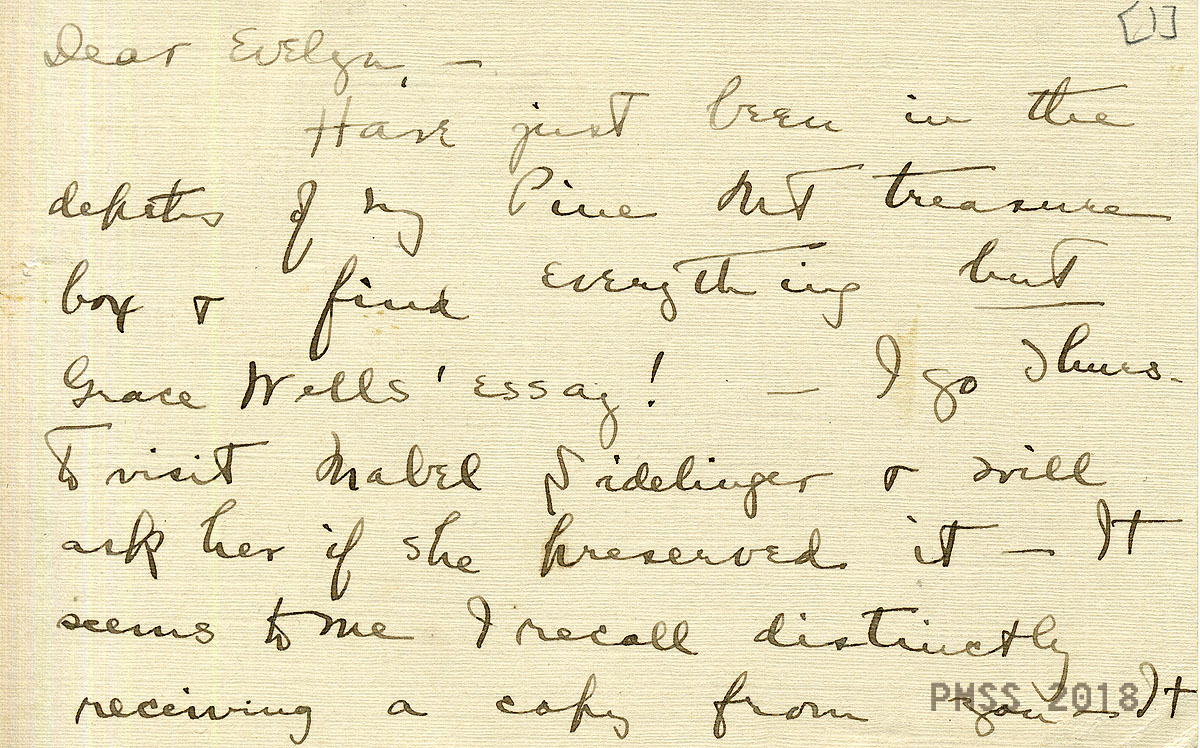 [1]
Dear Evelyn, —
Have just been in the
depths of my Pine Mt treasure
box & find everything but
Grace Wells' essay! — I go Thurs.
to visit Mabel Sidelinger & will
ask her if she preserved it — It
seems to me I recall distinctly
receiving a copy from you — It
PMSS 2018